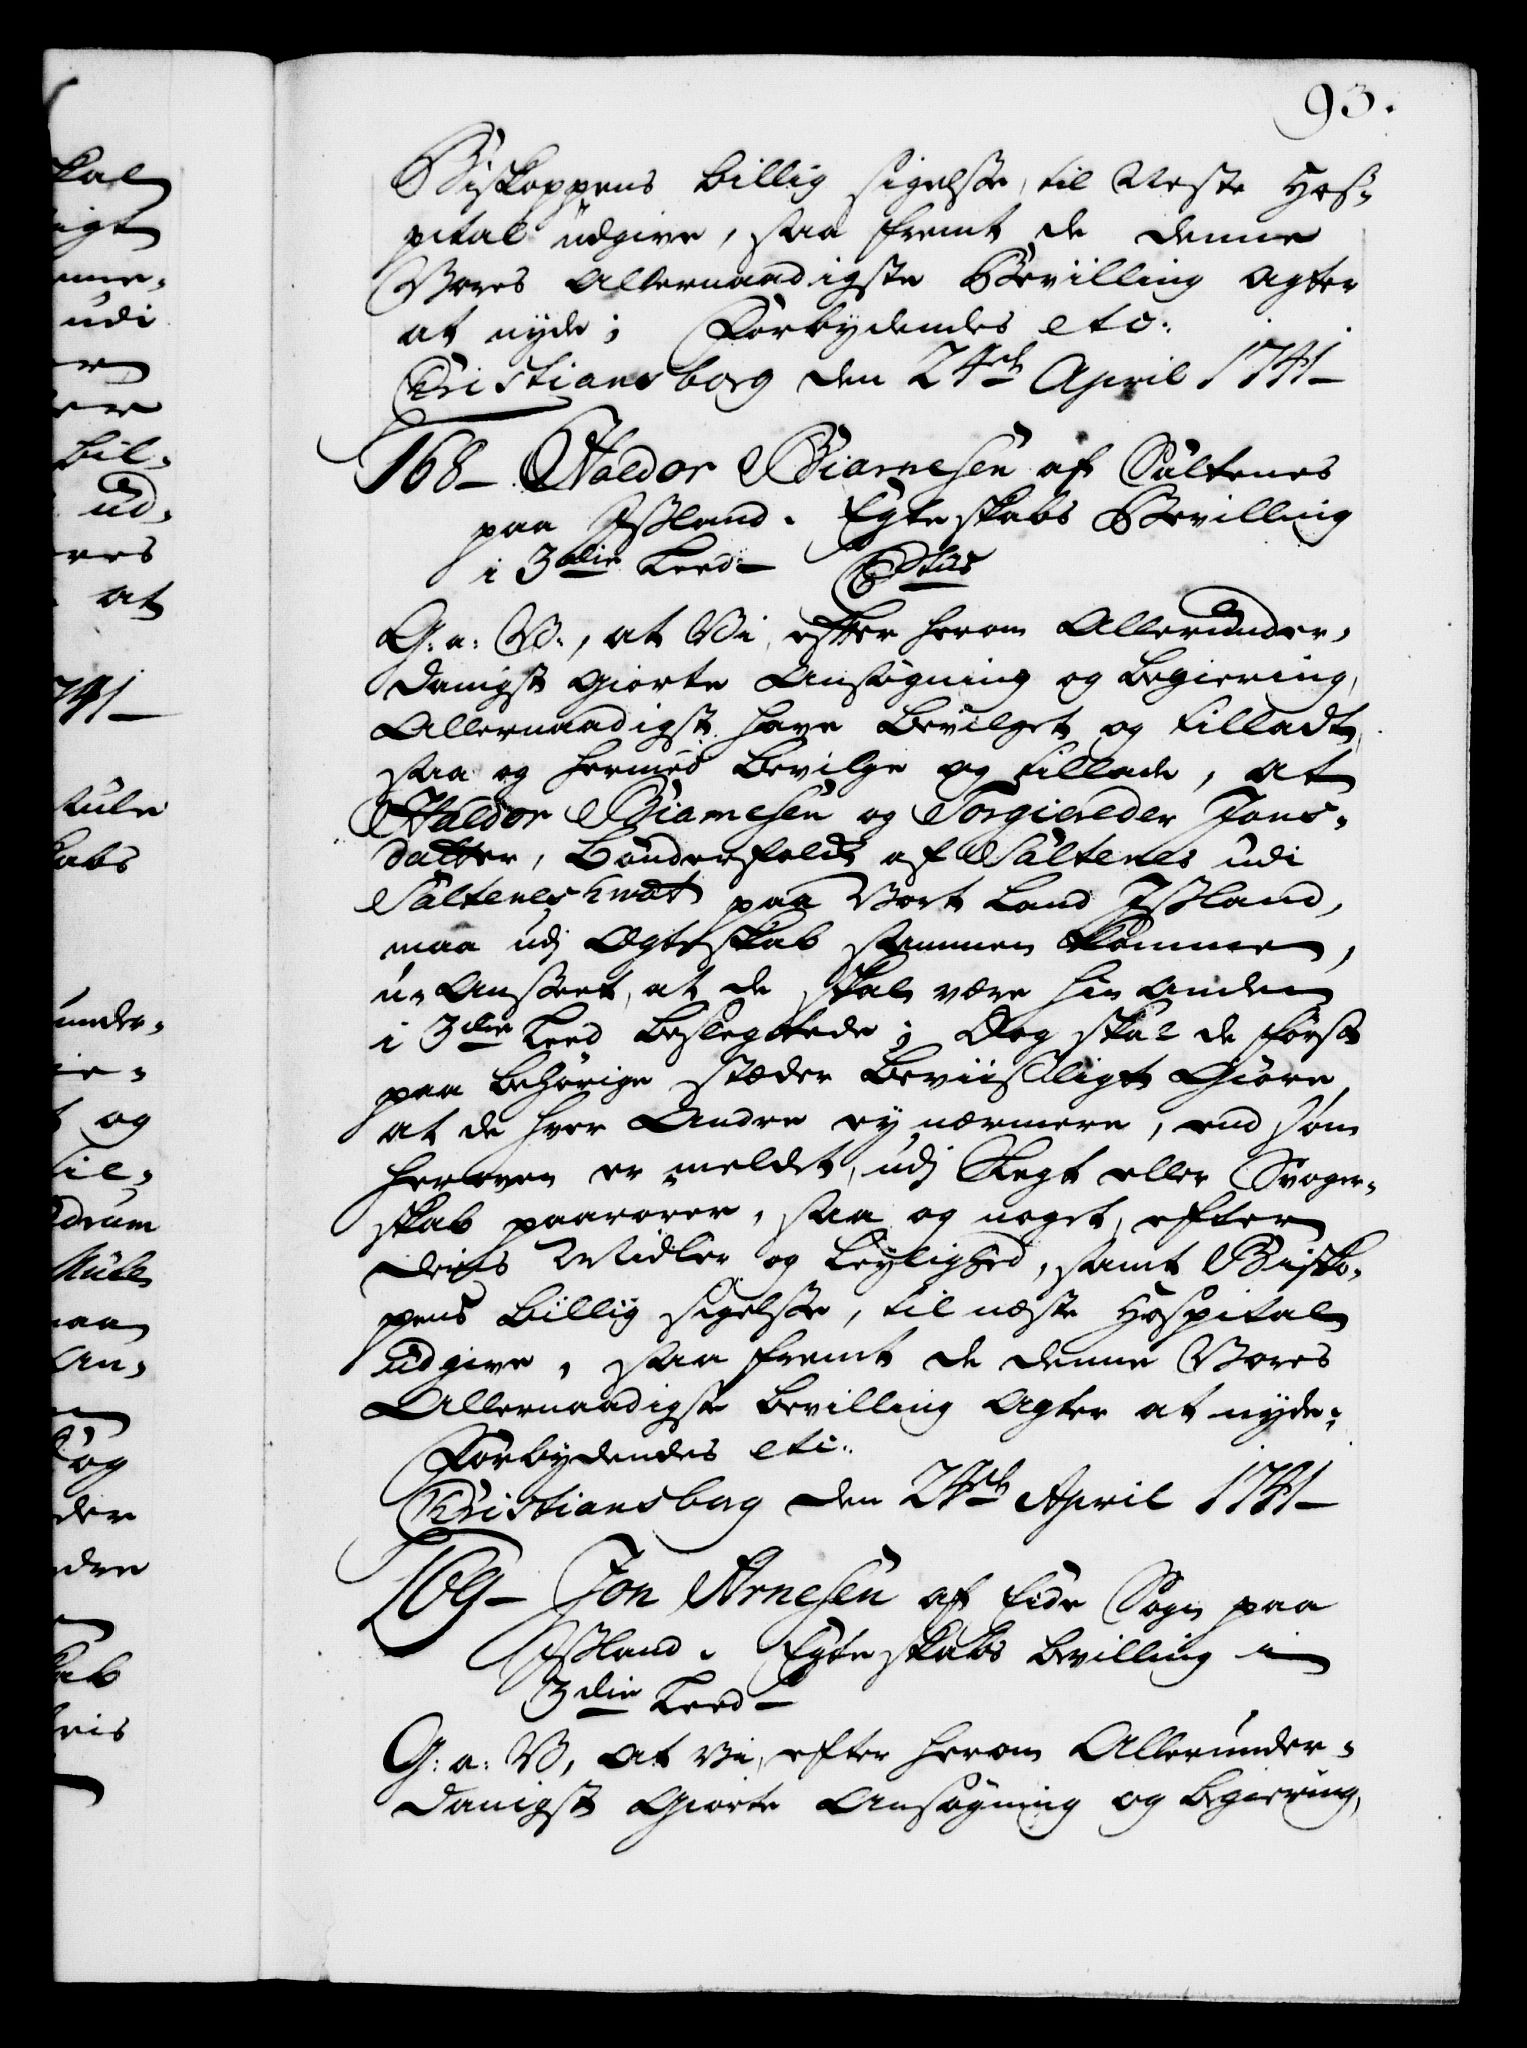 93.
Biskoppens billig sigelse, til Neste Hos-
pital udgive, saa fremt de denne
Vores Allernaadigste Bevilling agter
at nyde; Forbydendes etc:
Christiansborg den 24de April 1741
168- Haldor Biarnesen af Saltenes
paa Jssland. Egteskabs Bevilling
i 3die Leed-
G: a: V:, at Vi, efter herom Allerunder-
danigst giorte Ansøgning og begiering,
Allernaadigst have bevilget og tilladt,
saa og hermed bevilge og tillade, at
Haldor Biarnesen og Torgiereder Jons-
datter, bønderfolk af Saltenes udi
paa Vort Land Jssland,
maa udj Ægteskab sammen komme,
u-anseet, at de skal være hin anden
i 3die Leed beslegtede; Dog skal de først
paa behørige stæder beviisligt Giøre,
at de hver Andre ey nærmere, end som
heroven er meldet, udj Slegt eller Svoger-
skab paarører, saa og noget, efter
deris Midler og leylighed, samt Bisko-
pens billig sigelse, til næste Hospital
udgive, saa fremt de denne Vores
Allernaadigste bevilling agter at nyde.
Forbydendes etc:
Christiansborg den 24de April 1741
169- Jon Arnesen af Eide Sogn paa
Jssland. Egteskabs bevilling i
3die Leed-
G: a: V, at Vi, efter herom Allerunder-
danigst Giorte Ansøgning og begiering,
skal
igt
udi
bil-
ud-
at
1741
kabs
under-
og
til-
maa
an-
og
der
kab